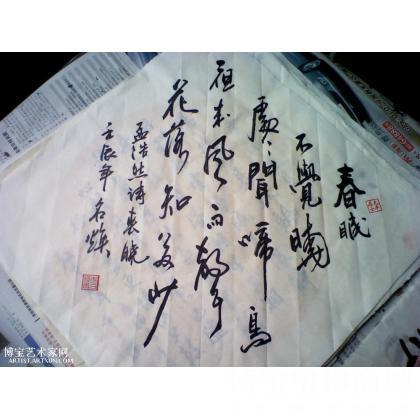 春眠
不覺曉
處々聞啼鳥
夜来風雨聲
花落知多少
孟浩然诗春晓
壬辰年
博宝艺术家网
ARTIST.ARTXUN.COM